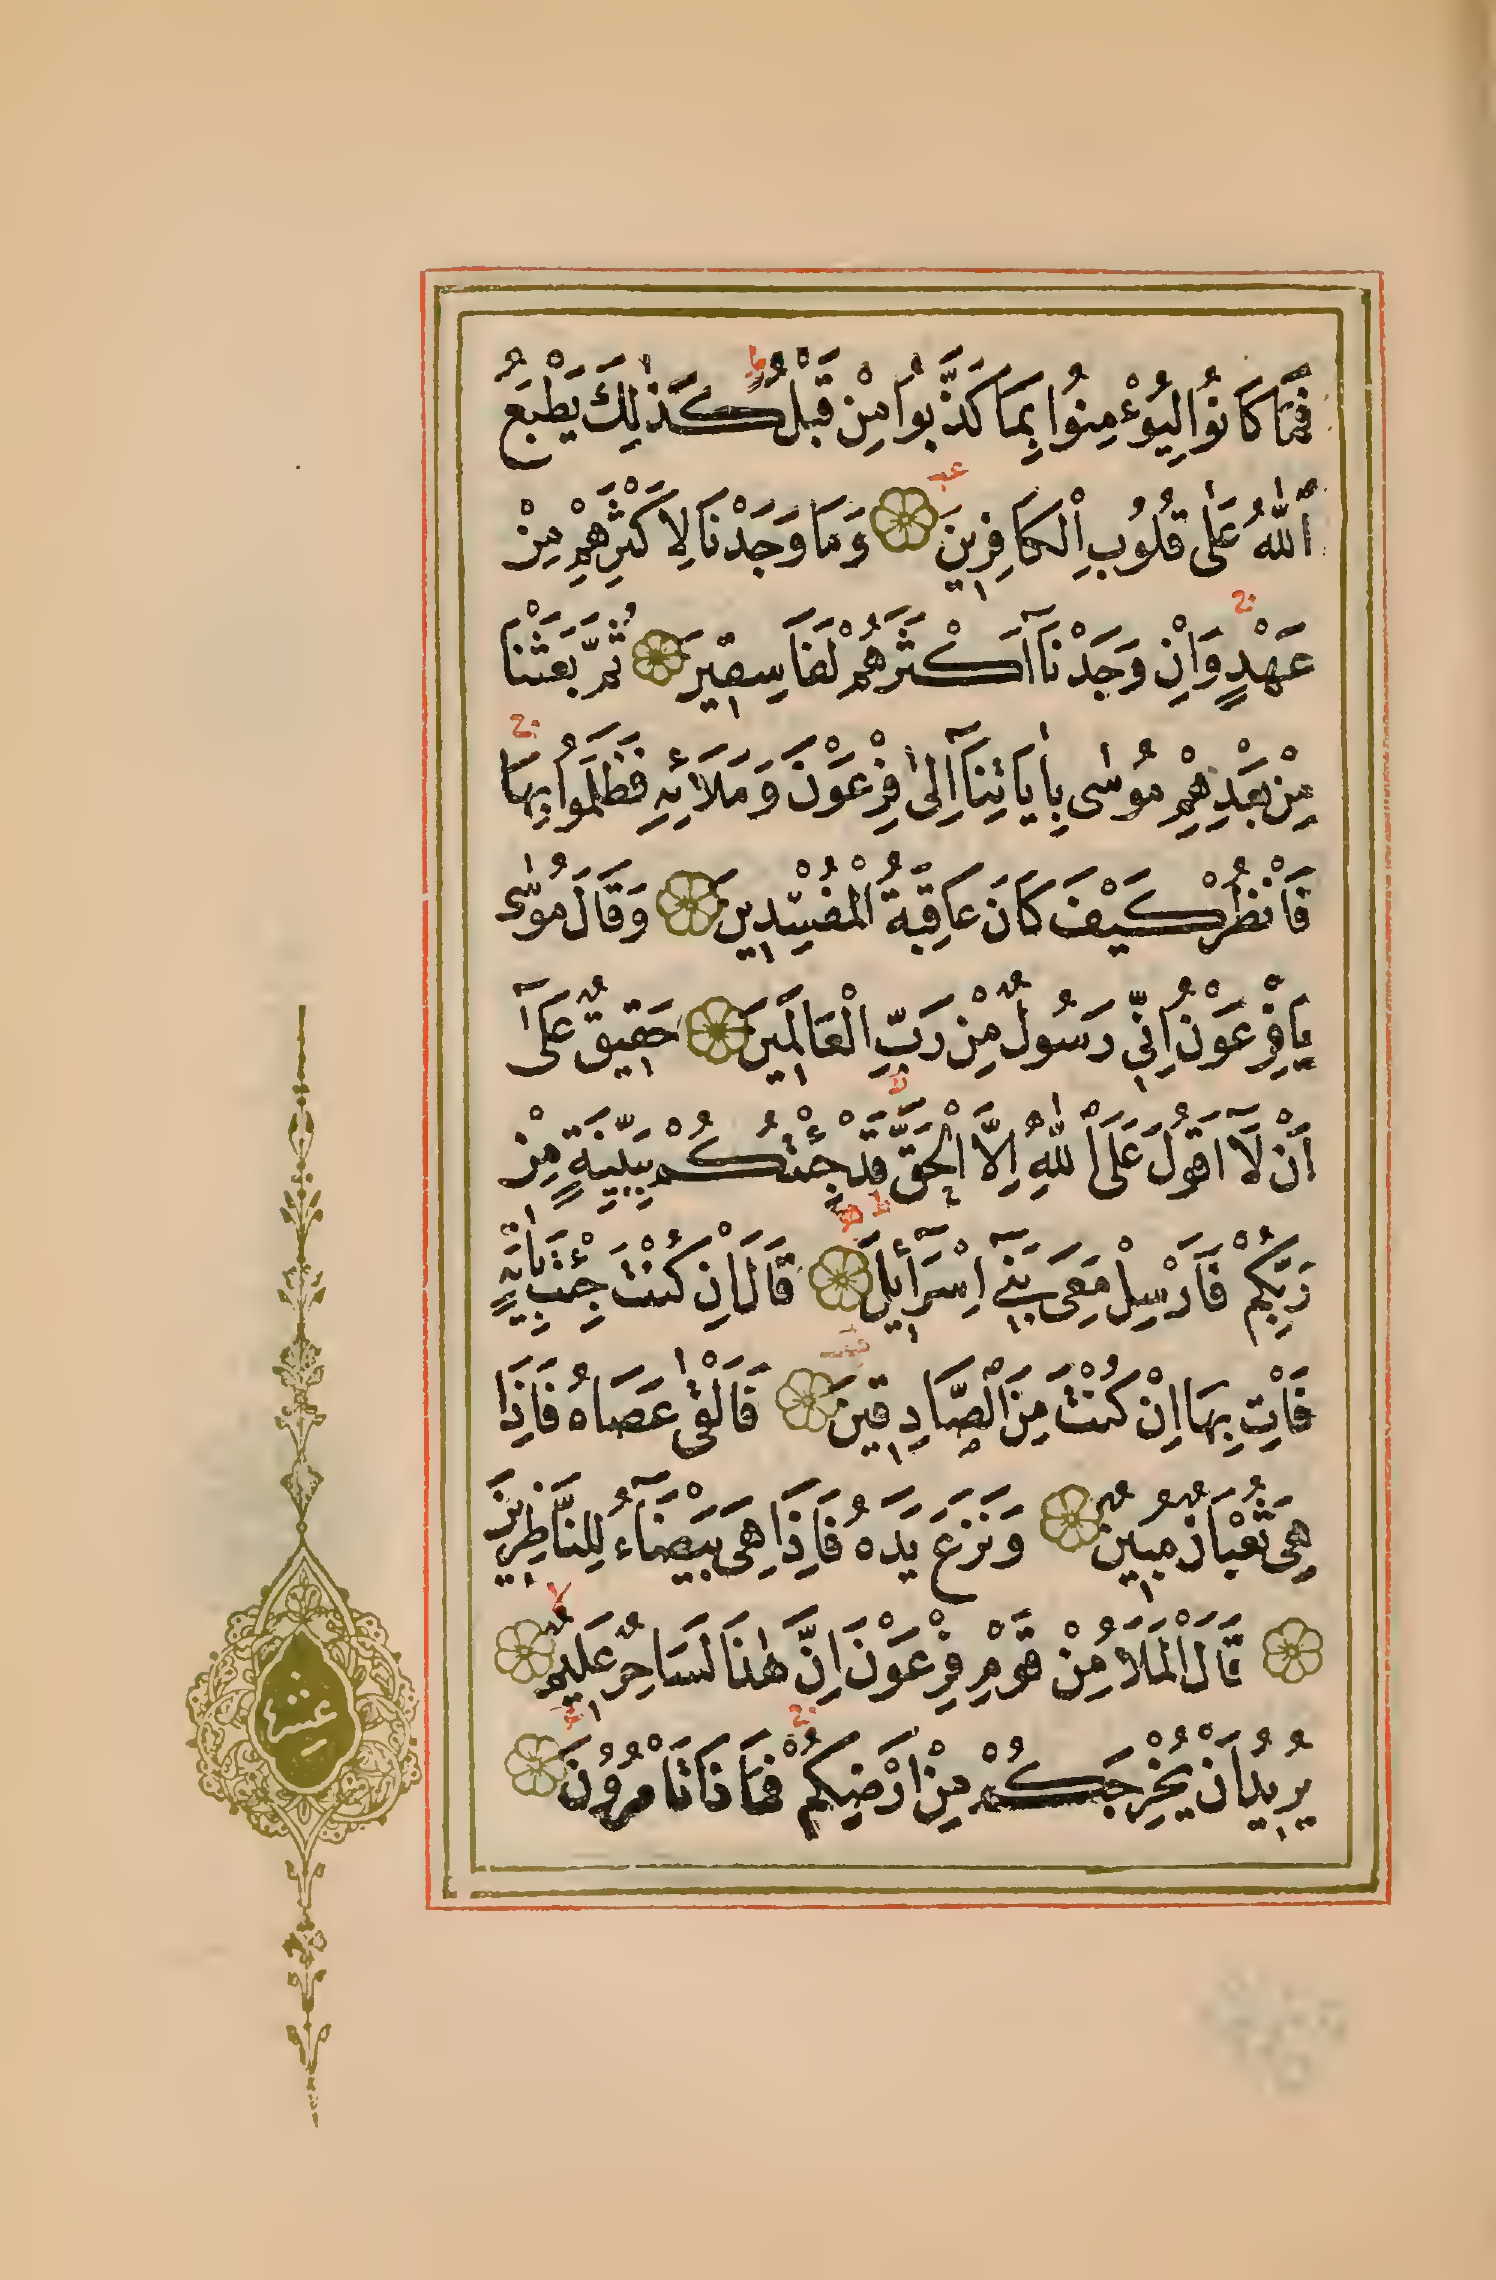 فَمَا كَانُوا لِيُؤْمِنُوا بِمَا كَذَّبُوا مِنْ قَبْلُ كَذٰلِكَ يَطْبَعُ
اللّٰهُ عَلٰى قُلُوبِ الْكَافِرِينَ وَمَا وَجَدْنَا لِاَكْثَرِهِمْ مِنْ
عَهْدٍ وَاِنْ وَجَدْنَآ اَكْثَرَهُمْ لَفَاسِقِينَ ثُمَّ بَعَثْنَا
مِنْ بَعْدِهِمْ مُوسٰى بِاٰيَاتِنَآ اِلٰى فِرْعَوْنَ وَمَلَائِهِ فَظَلَمُوا بِهَا
فَانْظُرْ كَيْفَ كَانَ عَاقِبَةُ الْمُفْسِدِينَ وَقَالَ مُوسٰى
يَا فِرْعَوْنُ اِنِّي رَسُولٌ مِنْ رَبِّ الْعَالَمِينَ حَقِيقٌ عَلٰٓى
اَنْ لَآ اَقُولَ عَلَى اللّٰهِ اِلَّا الْحَقَّ قَدْ جِئْتُكُمْ بِبَيِّنَةٍ مِنْ
رَبِّكُمْ فَاَرْسِلْ مَعِىَ بَنِٓي اِسْرَآئِيلَ قَالَ اِنْ كُنْتَ جِئْتَ بِاٰيَةٍ
فَاْتِ بِهَا اِنْ كُنْتَ مِنَ الصَّادِقِينَ فَاَلْقٰى عَصَاهُ فَاِذَا
هِىَ ثُعْبَانٌ مُبِينٌ وَنَزَعَ يَدَهُ فَاِذَا هِىَ بَيْضَآءُ لِلنَّاظِرِينَ
قَالَ الْمَلَاُ مِنْ قَوْمِ فِرْعَوْنَ اِنَّ هٰذَا لَسَاحِرٌ عَلِيمٌ
يُرِيدُ اَنْ يُخْرِجَكُمْ مِنْ اَرْضِكُمْ فَمَاذَا تَاْمُرُونَ
عشر